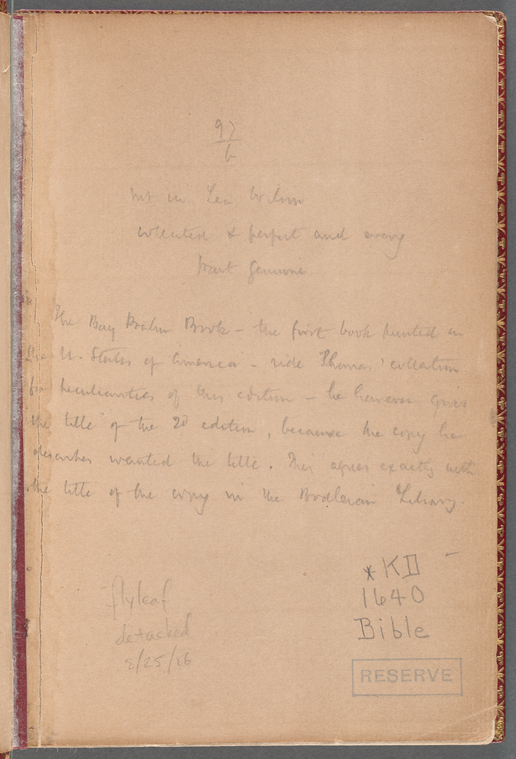 97
6
not in Lea Wilson
collated & perfect and every
part genuine
The Bay Psalm Book - the first book printed in
the U. States of America - vide Thomas' collation
for peculiarities of this edition - he however gives
the title of the 2d edition, because the copy he
describes wanted the title. This agrees exactly with
the title of the copy in the Bodleian Library.
flyleaf
detached
2/25/86
*KD
1640
Bible
RESERVE